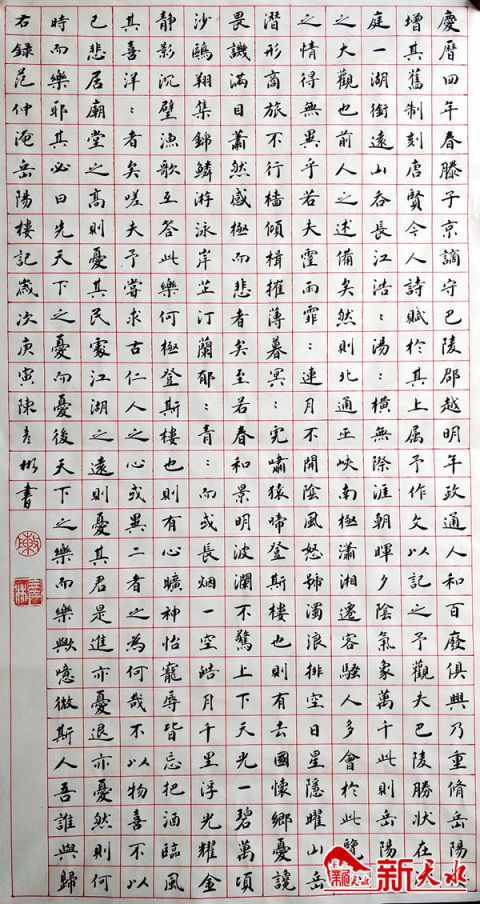 慶曆四年春滕子京謫守巴陵郡越明年政通人和百廢俱興乃重脩岳陽
增其舊制刻唐賢今人詩賦於其上属予作文以記之予觀夫巴陵勝狀在
庭一湖銜遠山吞長江浩:湯:橫無際涯朝暉夕陰氣象萬千此則岳陽
之大觀也前人之述備矣然則北通巫峽南極瀟湘遷客騷人多會於此覽
之情得無異乎若夫霪雨霏:連月不開陰風怒號濁浪排空日星隱曜山岳
潛形商旅不行檣傾楫摧薄暮冥:虎嘯猿啼登斯樓也則有去國懷鄉憂讒
畏譏滿目蕭然感極而悲者矣至若春和景明波瀾不驚上下天光一碧萬頃
沙鷗翔集錦鱗游泳岸芷汀蘭郁:青:而或長烟一空皓月千里浮光耀金
靜影沉璧漁歌互答此樂何極登斯樓也則有心曠神怡寵辱皆忘把酒臨風
其喜洋:者矣嗟夫予嘗求古仁人之心或異二者之為何哉不以物喜不以
己悲居廟堂之高則憂其民處江湖之遠則憂其君是進亦憂退亦憂然則何
時而樂耶其必曰先天下之憂而憂後天下之樂而樂歟噫微斯人吾誰與歸
右録范仲淹岳陽樓記歲次庚寅陳彥彬書
新天水